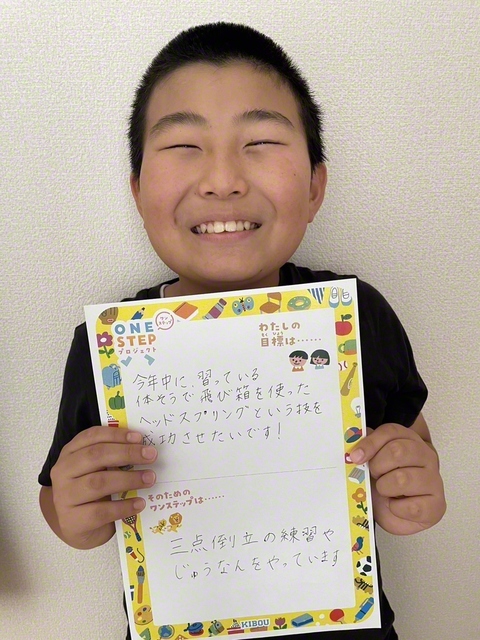 ONE
STEP
プロジェクト
ワン
ステップ
わたしの
もくひょう
目標は……
今年中に、習っている
体そうで飛び箱を使った
ヘッドスプリングという技を
成功させたいです!
そのための
ワンステップは……
三点倒立の練習や
じゅうなんをやっています
KIBOU